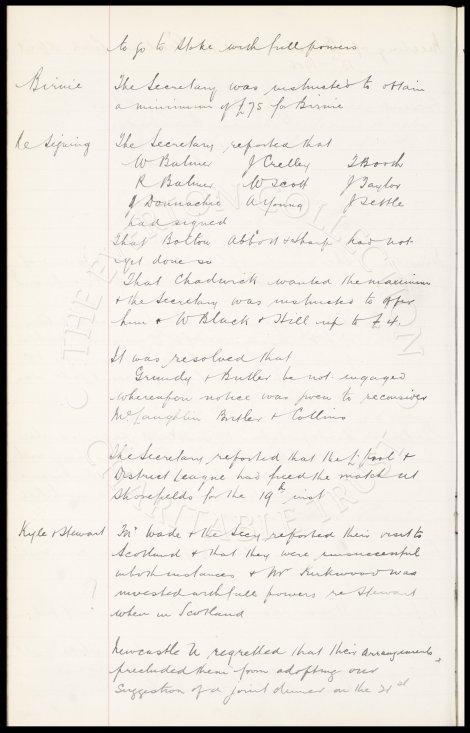 to go to Stoke with full powers
Birnie
The Secretary was instructed to obtain
a minimum of £75 for Birnie
Re Signing
The Secretary reported that
W Balmer J Crelley T Booth
R Balmer W Scott J Taylor
J Donnachie A Young J Settle
had signed
That Bolton Abbott & Sharp had not
yet done so
That Chadwick wanted the maximum
& the Secretary was instructed to offer
him & W Black & Hill up to £4.
It was resolved that
Grundy & Butler be not engaged
whereupon notice was given to reconsider
McLaughlin Butler & Collins
The Secretary reported that the L'pool &
District League had fixed the match at
Shorefields for the 19th inst
Kyle & Stewart
Mr Wade & the Secy reported their visit to
Scotland & that they were unsuccessful
in both instances & Mr Kirkwood was
invested with full powers re Stewart
when in Scotland
?
Newcastle U regretted that their arrangements
precluded them from adopting our
suggestion of a joint dinner on the 21st
THE EVERTON COLLECTION
CHARITABLE TRUST